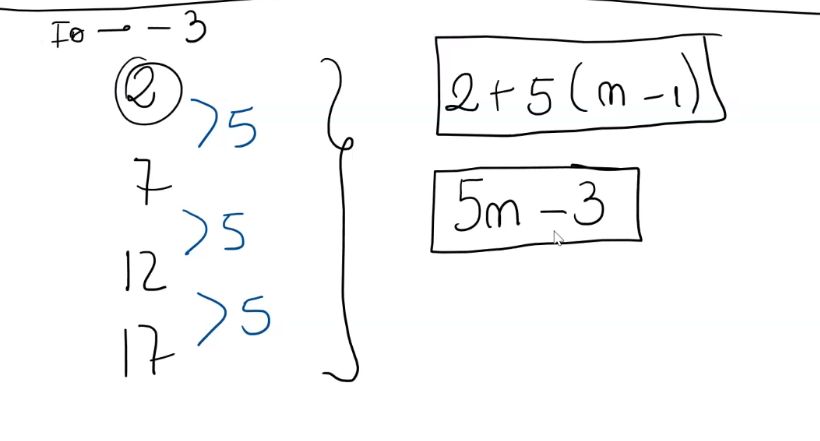 I0 → -3
2
>5
7
>5
12
>5
17
2+5(n-1)
5n-3